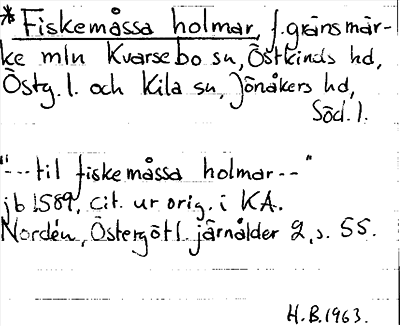 * Fiskemåssa holmar, f. gränsmär-
ke mln Kvarsebo sn, Östkinds hd,
Östg. l. och Kila sn, Jönåkers hd,
Söd. l.
"--- til fiskemåssa holmar ---"
jb 1589, cit. ur orig. i KA.
Nordén, Östergötl. järnålder 2, s. 55.
H.B. 1963.